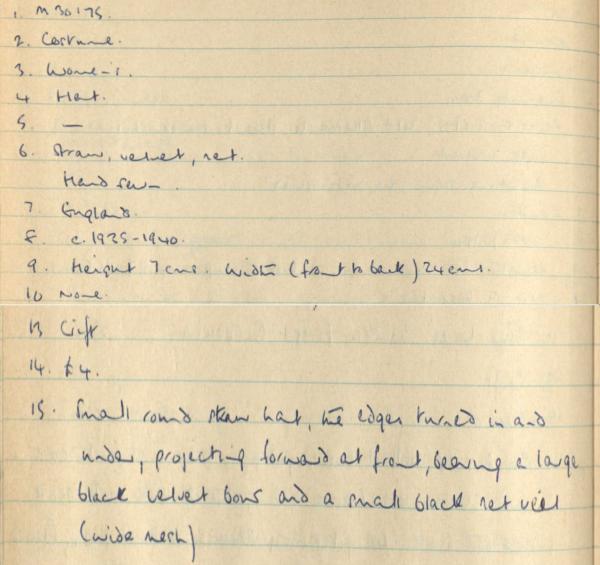 1. M30175.
2. Costume.
3. Women's.
4 Hat.
5 —
6. Straw, velvet, net.
Hand sewn.
7. England.
8. c.1935-1940.
9. Height 7cms. Width (front to back) 24cms.
10 None.
13 Gift
14. £4.
15. Small round straw hat, the edges turned in and
under, projecting forward at front, bearing a large
black velvet bow and a small black net veil
(wide mesh)